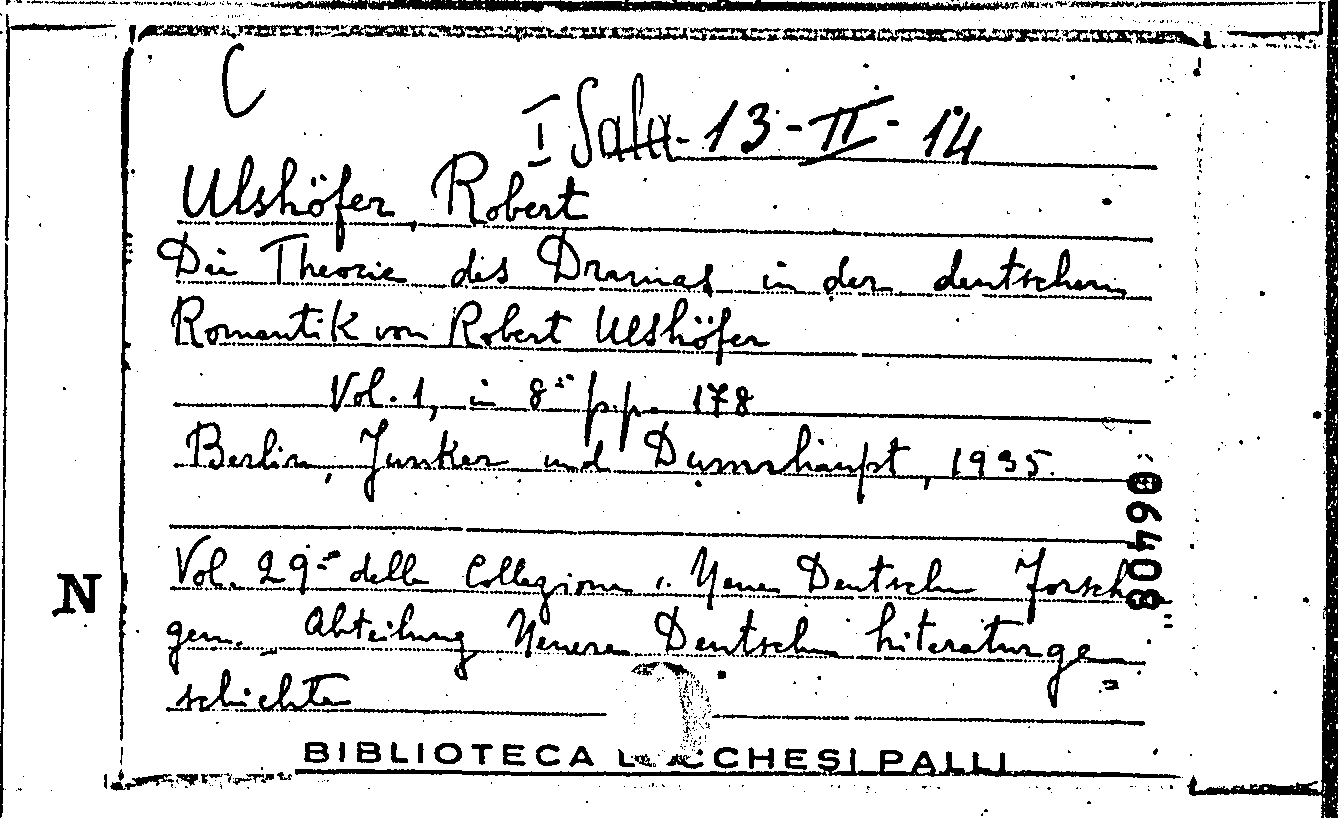 C
I Sala - 13 - II - 14
Ulshöfer, Robert
Die Theorie des Dramas in der deutschen
Romantik von Robert Ulshöfer
Vol. 1, in 8° pp. 178
Berlin, Junker und Dünnhaupt, 1935.
06408
Vol. 29° della Collezione "Neue Deutsche Forsch
N
gen. Abteilung Neuere Deutsche Literaturge=
schichte
BIBLIOTECA LUCCHESI PALLI